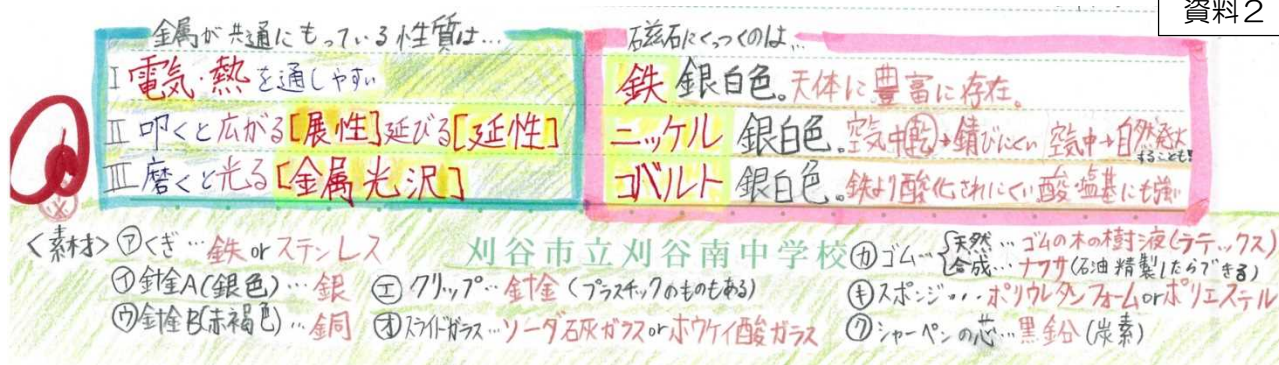 資料2
金属が共通にもっている性質は…
I 電気・熱を通しやすい
II 叩くと広がる[展性]延びる[延性]
III 磨くと光る[金属光沢]
磁石にくっつくのは…
鉄 銀白色。天体に豊富に存在。
ニッケル 銀白色。空気中乾→錆びにくい 空気中→自然発火することも!
コバルト 銀白色。鉄より酸化されにくい 酸・塩基にも強い
刈谷市立刈谷南中学校
<素材>㋐くぎ…鉄orステンレス
㋑針金A(銀色)…銀
㋒針金B(赤褐色)…銅
㋓クリップ…針金(プラスチックのものもある)
㋔スライドガラス…ソーダ石灰ガラスorホウケイ酸ガラス
㋕ゴム…天然…ゴムの木の樹液(ラテックス)
合成…ナフサ(石油精製したらできる)
㋖スポンジ…ポリウレタンフォームorポリエステル
㋗シャーペンの芯…黒鉛(炭素)